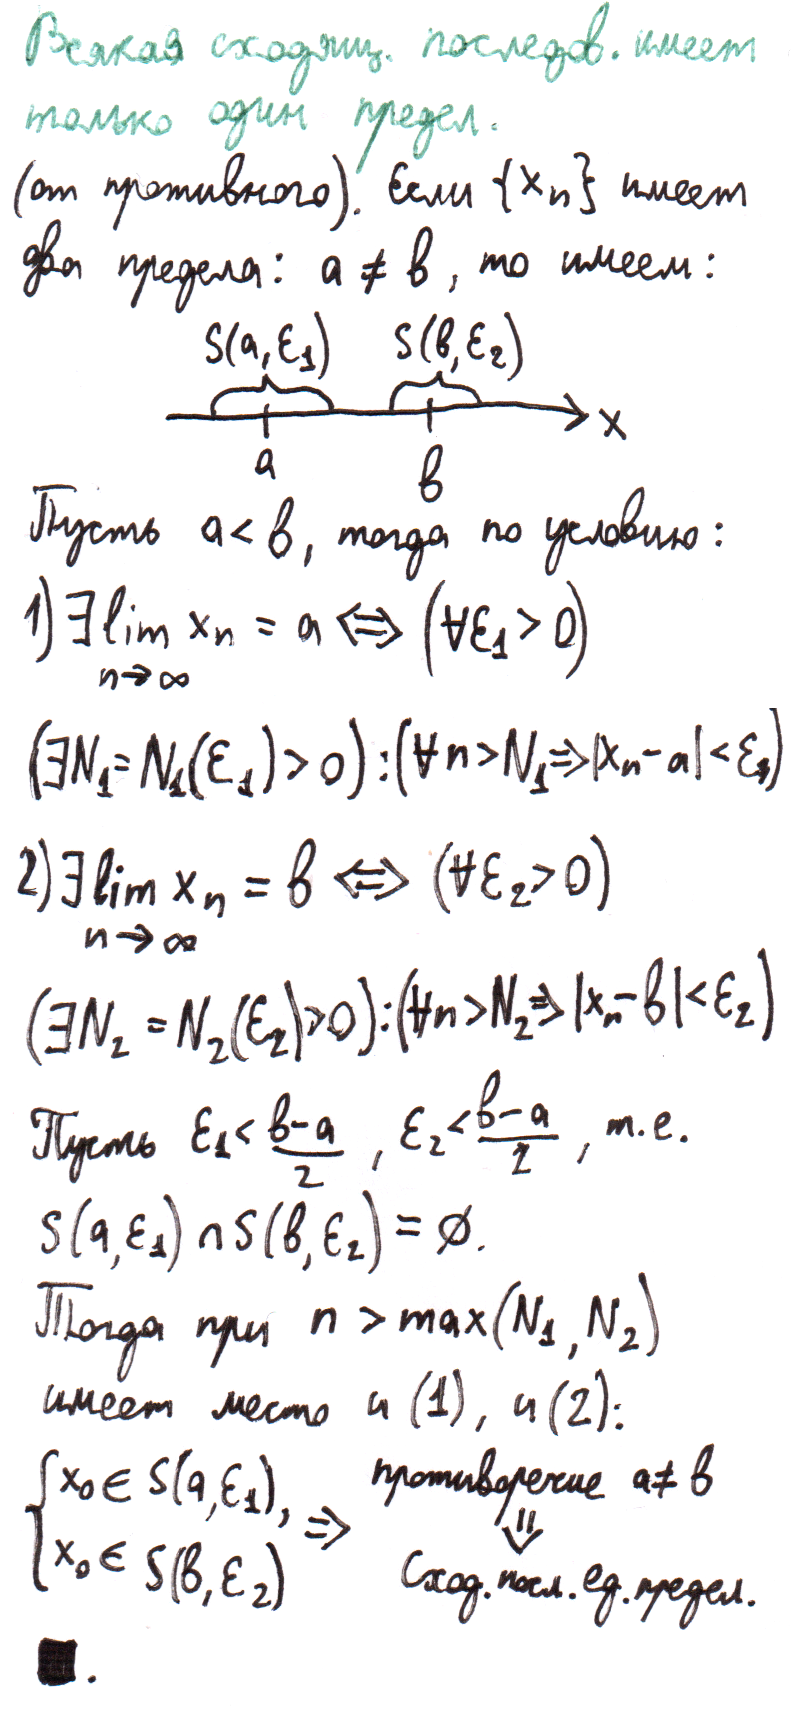 Всякая сходящ. последов. имеет
только один предел.
(от противного). Если {xₙ} имеет
два предела: a ≠ b, то имеем:
S(a,ε₁) S(b,ε₂)
a b x
Пусть a < b, тогда по условию:
1) ∃ lim xₙ = a ⇔ (∀ε₁ > 0)
n→∞
(∃N₁ = N₁(ε₁) > 0) : (∀n > N₁ ⇒ |xₙ - a| < ε₁)
2) ∃ lim xₙ = b ⇔ (∀ε₂ > 0)
n→∞
(∃N₂ = N₂(ε₂) > 0) : (∀n > N₂ ⇒ |xₙ - b| < ε₂)
Пусть ε₁ < (b-a)/2, ε₂ < (b-a)/2, т.е.
S(a,ε₁) ∩ S(b,ε₂) = ∅.
Тогда при n > max(N₁, N₂)
имеет место и (1), и (2):
{ x₀ ∈ S(a,ε₁), x₀ ∈ S(b,ε₂) ⇒ противоречие a ≠ b
⇓
Сход. посл. ед. предел.
■.